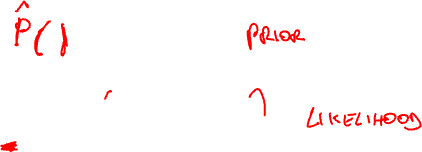 P̂( ) PRIOR
LIKELIHOOD